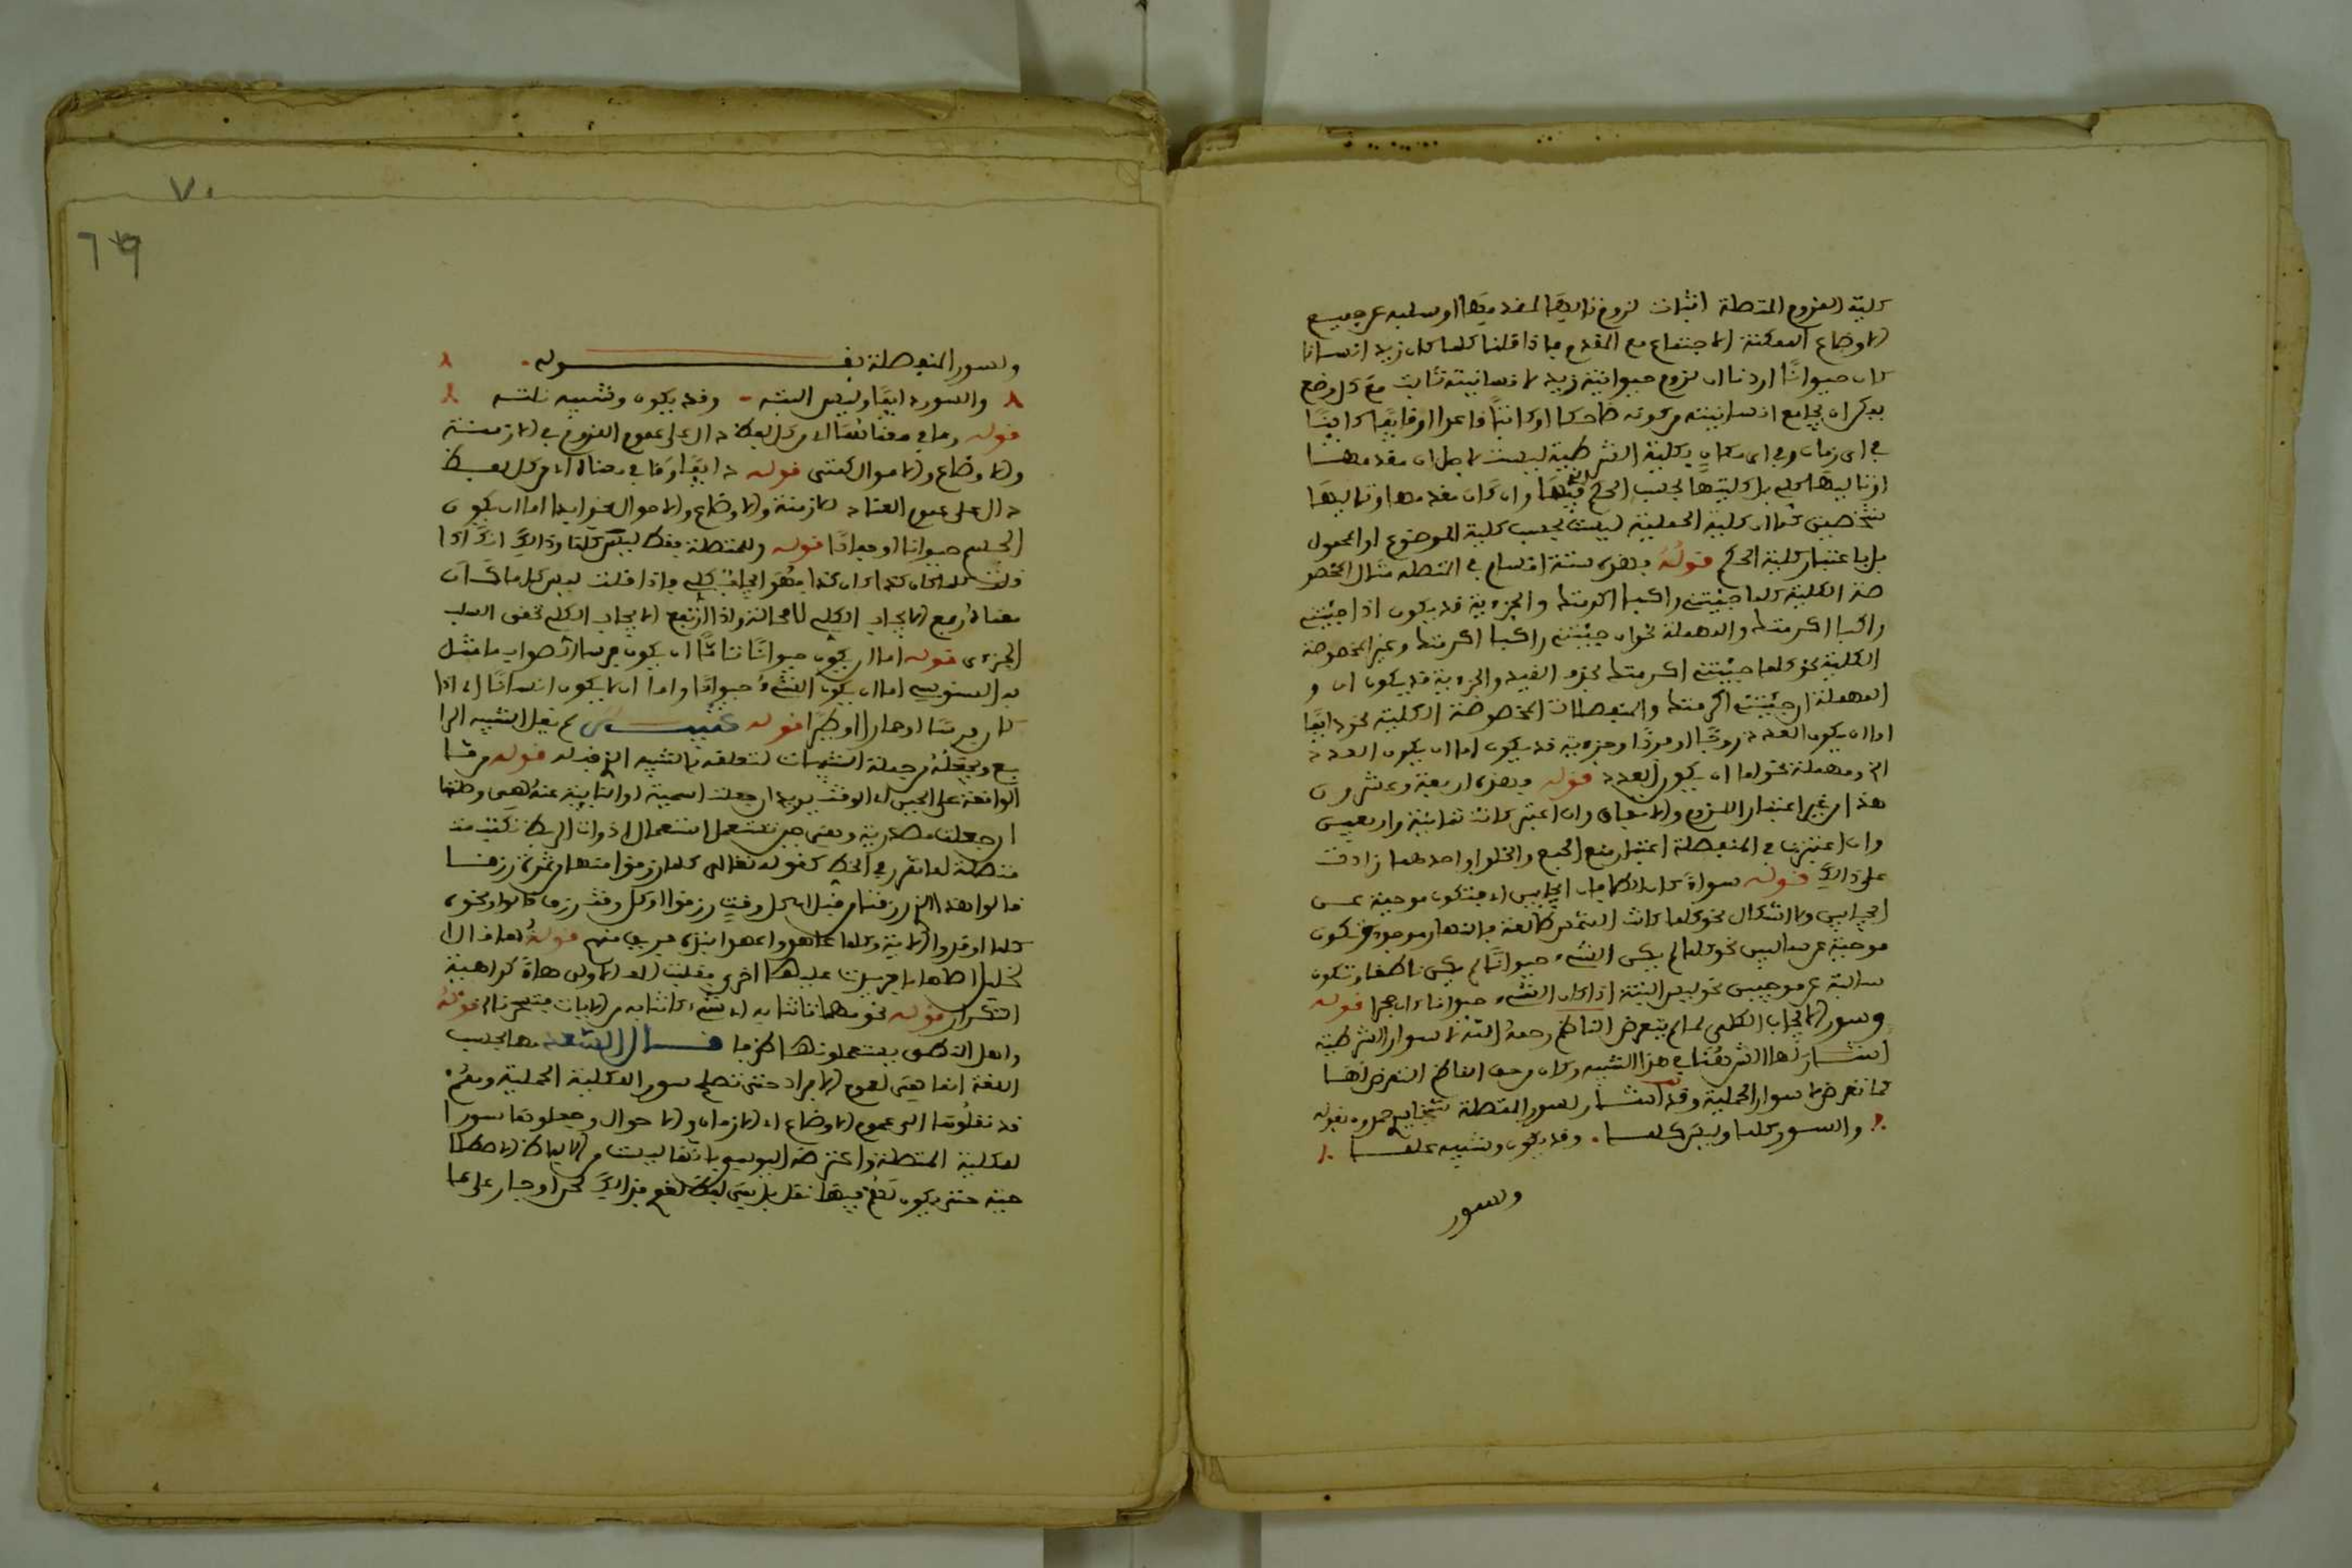 كلية اللزوم المتصلة اثبات لزوم تاليها لمقدمها او سلبه عن جميع
الاوضاع الممكنة الاجتماع مع المقدم فاذا قلنا كلما كان زيد انسانا
كان حيوانًا اردنا ان لزوم حيوانية زيد لانسانيته ثابت مع كل وضع
يمكن ان يجامع انسانيته من كونه ضاحكا او كاتبًا قاعدا او قايمًا كاينًا
في اي زمان وفي اي مكان فكلية الشرطية ليست لاجل ان مقدمها
او تاليها كلي بل كليتها بحسب الحكم فيها وان كان مقدمها وتاليها
شخصيين كما ان كلية الحملية ليست بحسب كلية الموضوع او المحمول
بل باعتبار كلية الحكم قوله فهذه ستة اقسام في المتصلة مثال المخصو
صة الكلية كلما جئتني راكبا اكرمتك والجزءية قد يكون اذا جئتني
راكبا اكرمتك والمهملة نحو ان جئتني راكبا اكرمتك وغير المخصوصة
الكلية نحو كلما جئتني اكرمتك بحذف القيد والجزءية قد يكون ان و
المهملة ان جئتني اكرمتك والمنفصلات المخصوصة الكلية نحو دايمًا
اما ان يكون العدد زوجًا او فردًا وجزءية قد يكون اما ان يكون العدد
الخ ومهملة نحو اما ان يكون العدد قوله فهذه اربعة وعشرون
هذا من غير اعتبار اللزوم والاتفاق وان اعتبر كانت ثمانية واربعين
وان اعتبرنا في المنفصلة اعتبار منع الجمع والخلو او احدهما زادت
على ذالك قوله سواءً كان الطرفان ايجابيين اي فتكون موجبة عن
ايجابيين ولا اشكال نحو كلما كانت الشمس طالعة فالنهار موجود وتكون
موجبة عن سالبين نحو كلما لم يكن الشيء حيوانًا لم يكن ناطقا وتكون
سالبة عن موجبين نحو ليس البتة اذا كان الشيء حيوانا كان حجرا قوله
وسور الايجاب الكلي لما لم يتعرض الناظم رحمه الله لاسوار الشرطية
اشار لها الش هنا في هذا التنبيه وكان من حق الناظم التعرض لها
كما تعرض لاسوار الحملية وقد اشار لسور المتصلة شيخنا بن حمدون بقوله
والسور كلما وليس كلما . وقد يكون وشبيه علما
وسور
٧٠
٦٩
ولسور المنفصلة بقوله .
والسور دايمًا وليس البته - وقد يكون وشبيه نلته
قوله وما في معناهما اي من كل لفظ دال على عموم اللزوم في الازمنة
والاوضاع والاحوال كمتى قوله دايمًا وما في معناه اي من كل لفظ
دال على عموم العناد للازمنة والاوضاع والاحوال نحو ابدا اما ان يكون
الجسم حيوانا او جمادًا قوله وللمتصلة فقط ليس كلما وذالك انك اذا
قلت كلما كان كذا كان كذا فهو ايجاب كلي فاذا قلت ليس كلما كان
معناه رفع الايجاب الكلي لا محالة واذا ارتفع الايجاب الكلي تحقق السلب
الجزءي قوله اما ان يكون حيوانًا تامًا ان يكون فرسا صوابه ما مثل
به السنوسي اما ان يكون الشيء حيوانًا واما ان لا يكون انسانًا اي اذا
كان فرسًا او حمارا او طيرًا قوله تنبيه لم يقل التنبيه الرا
بع ويجعله من جملة التنبيهات لتعلقه بالتنبيه الذي قبله قوله مرفا
الواقعة على الجنس اي الوقت يريد ان جعلت اسمية او النايبة عنه هي وصلتها
ان جعلت مصدرية ويعني حين تستعمل استعمال ادوات الربط تكتب
متصلة لما تقرر في الخط كقوله تعالى كلما رزقوا منها من ثمرة رزقا
قالوا هذا الذي رزقنا من قبل اي كل وقت رزقوا او كل وقت رزق قالوا ونحوه
كلما اوقدوا الاية وكلما عاهدوا عهدا نبذه فريق منهم قوله مهما قال
خليل اصلها ما فزيدت عليها اخرى فقلبت الف الاولى هاءً كراهية
التكرار قوله نحو مهما تاتنا به اي شيء تاتنا به من الايات لتسحرنا قوله
واهل المنطق يستعملونها الخ ما قال السعد مهما بحسب
اللغة انما هي لعموم الافراد حتى تصلح سور الكلية الحملية وهم
قد نقلوها الى عموم الاوضاع اي الازمان والاحوال وجعلوها سورا
لكلية المتصلة واعترضه اليوسي بانها ليست من الالفاظ الاصطلا
حية حتى يكون لهم فيها نقل بل هي لفظ لغوي فذالك تحرا وجار على ما